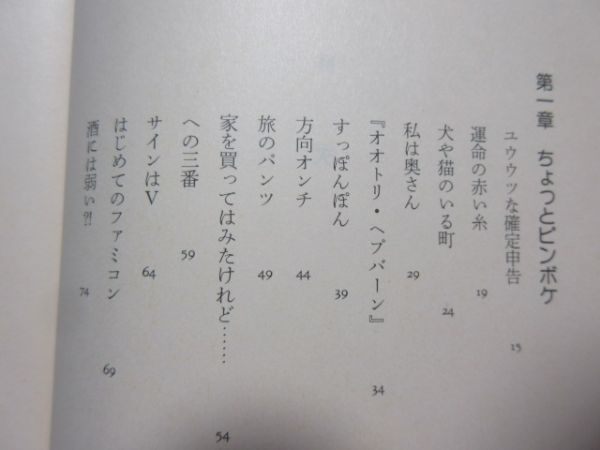 第一章 ちょっとピンボケ
ユウウツな確定申告 15
運命の赤い糸 19
犬や猫のいる町 24
私は奥さん 29
『オオトリ・ヘプバーン』 34
すっぽんぽん 39
方向オンチ 44
旅のパンツ 49
家を買ってはみたけれど…… 54
への三番 59
サインはV 64
はじめてのファミコン 69
酒には弱い?! 74